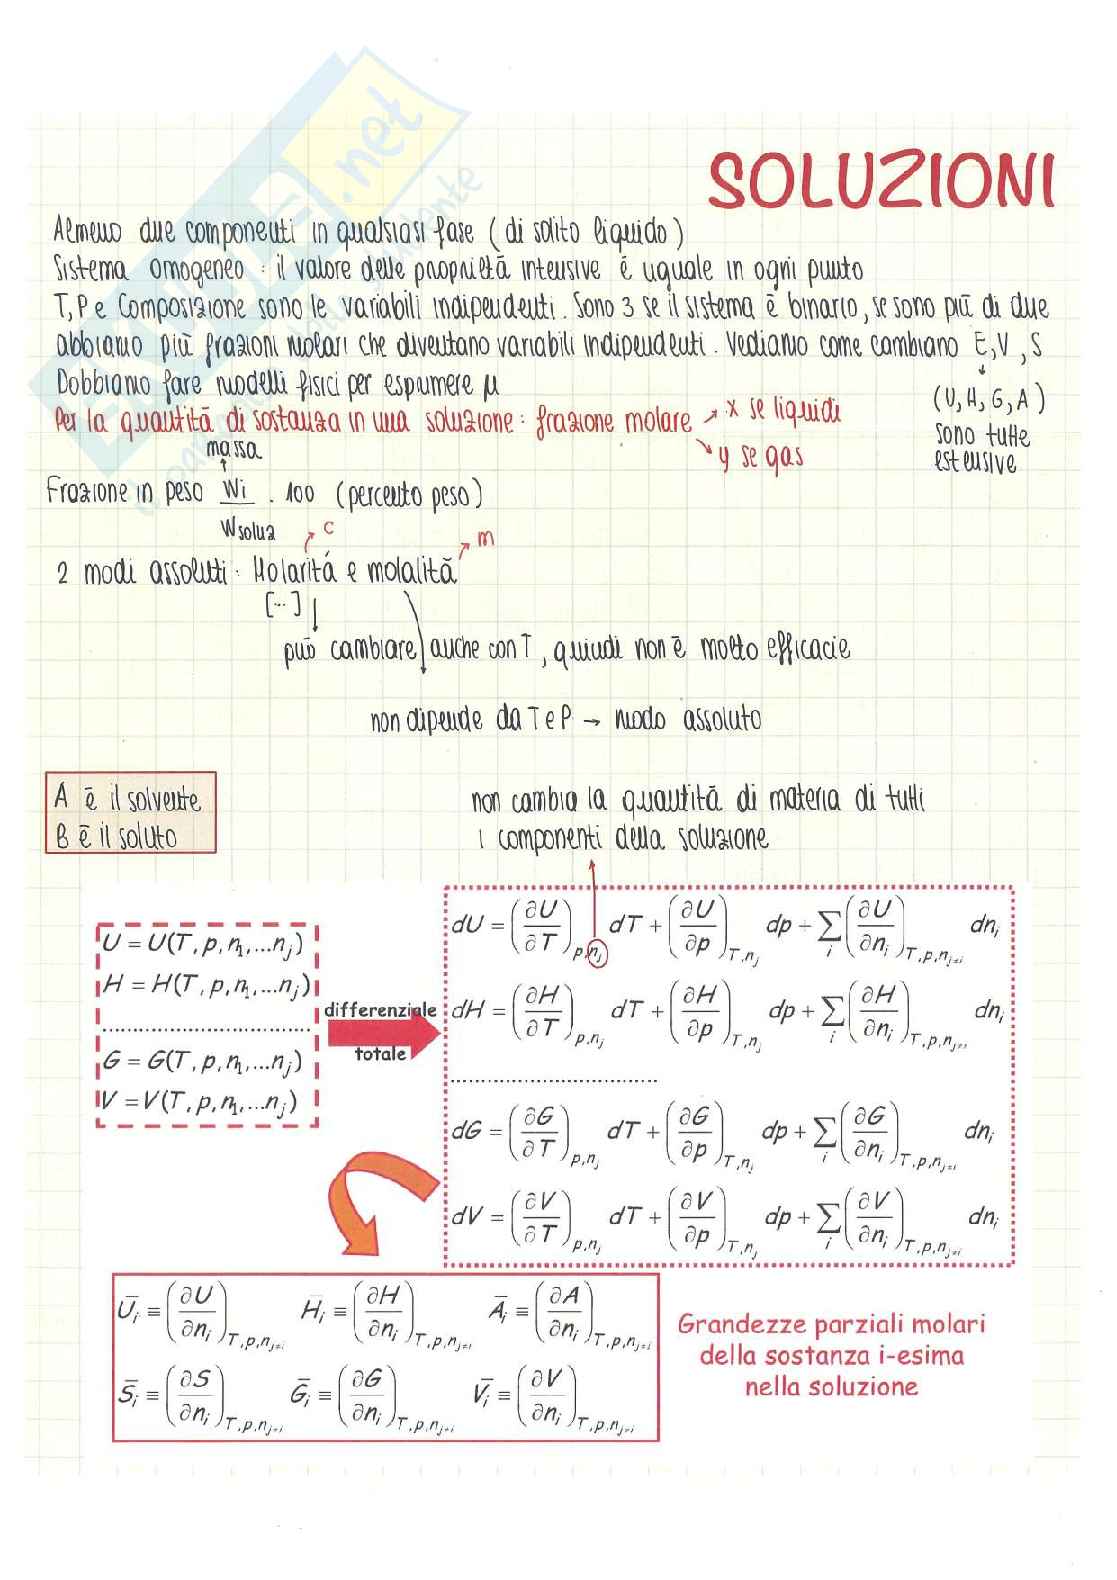 SOLUZIONI
Almeno due componenti in qualsiasi fase (di solito liquido)
Sistema omogeneo: il valore delle proprietà intensive è uguale in ogni punto
T, P e Composizione sono le variabili indipendenti. Sono 3 se il sistema è binario, se sono più di due
abbiamo più frazioni molari che diventano variabili indipendenti. Vediamo come cambiano E, V, S
(U, H, G, A)
sono tutte
estensive
Dobbiamo fare modelli fisici per espumere μ
Per la quantità di sostanza in una soluzione: frazione molare → x se liquidi
↘ y se gas
massa
↑
Frazione in peso Wi/Wsoluz . 100 (percento peso)
2 modi assoluti: Molarità e molalità
↗ c
↗ m
[...]
può cambiare anche con T, quindi non è molto efficacie
non dipende da T e P → modo assoluto
A è il solvente
B è il soluto
non cambia la quantità di materia di tutti
i componenti della soluzione
U = U(T, p, n₁, ...nⱼ)
H = H(T, p, n₁, ...nⱼ)
..............................
G = G(T, p, n₁, ...nⱼ)
V = V(T, p, n₁, ...nⱼ)
differenziale
totale
dU = (∂U/∂T)p,nⱼ dT + (∂U/∂p)T,nⱼ dp + ∑i (∂U/∂nᵢ)T,p,nⱼ≠ᵢ dnᵢ
dH = (∂H/∂T)p,nⱼ dT + (∂H/∂p)T,nⱼ dp + ∑i (∂H/∂nᵢ)T,p,nⱼ≠ᵢ dnᵢ
..............................
dG = (∂G/∂T)p,nⱼ dT + (∂G/∂p)T,nⱼ dp + ∑i (∂G/∂nᵢ)T,p,nⱼ≠ᵢ dnᵢ
dV = (∂V/∂T)p,nⱼ dT + (∂V/∂p)T,nⱼ dp + ∑i (∂V/∂nᵢ)T,p,nⱼ≠ᵢ dnᵢ
Ūᵢ ≡ (∂U/∂nᵢ)T,p,nⱼ≠ᵢ H̄ᵢ ≡ (∂H/∂nᵢ)T,p,nⱼ≠ᵢ Āᵢ ≡ (∂A/∂nᵢ)T,p,nⱼ≠ᵢ
S̄ᵢ ≡ (∂S/∂nᵢ)T,p,nⱼ≠ᵢ Ḡᵢ ≡ (∂G/∂nᵢ)T,p,nⱼ≠ᵢ V̄ᵢ ≡ (∂V/∂nᵢ)T,p,nⱼ≠ᵢ
Grandezze parziali molari
della sostanza i-esima
nella soluzione